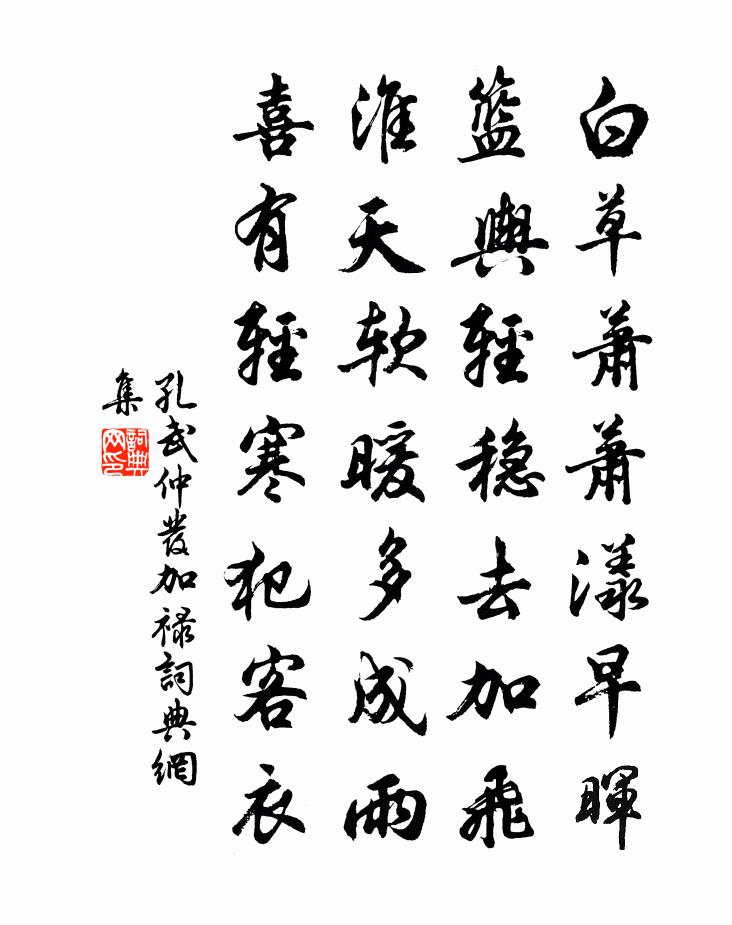 白草蕭蕭漾早暉
籃輿輕穏去加飛
淮天軟暖多成雨
喜有輕寒犯客衣
孔武仲發加禄詞典網
集
詞典
网印